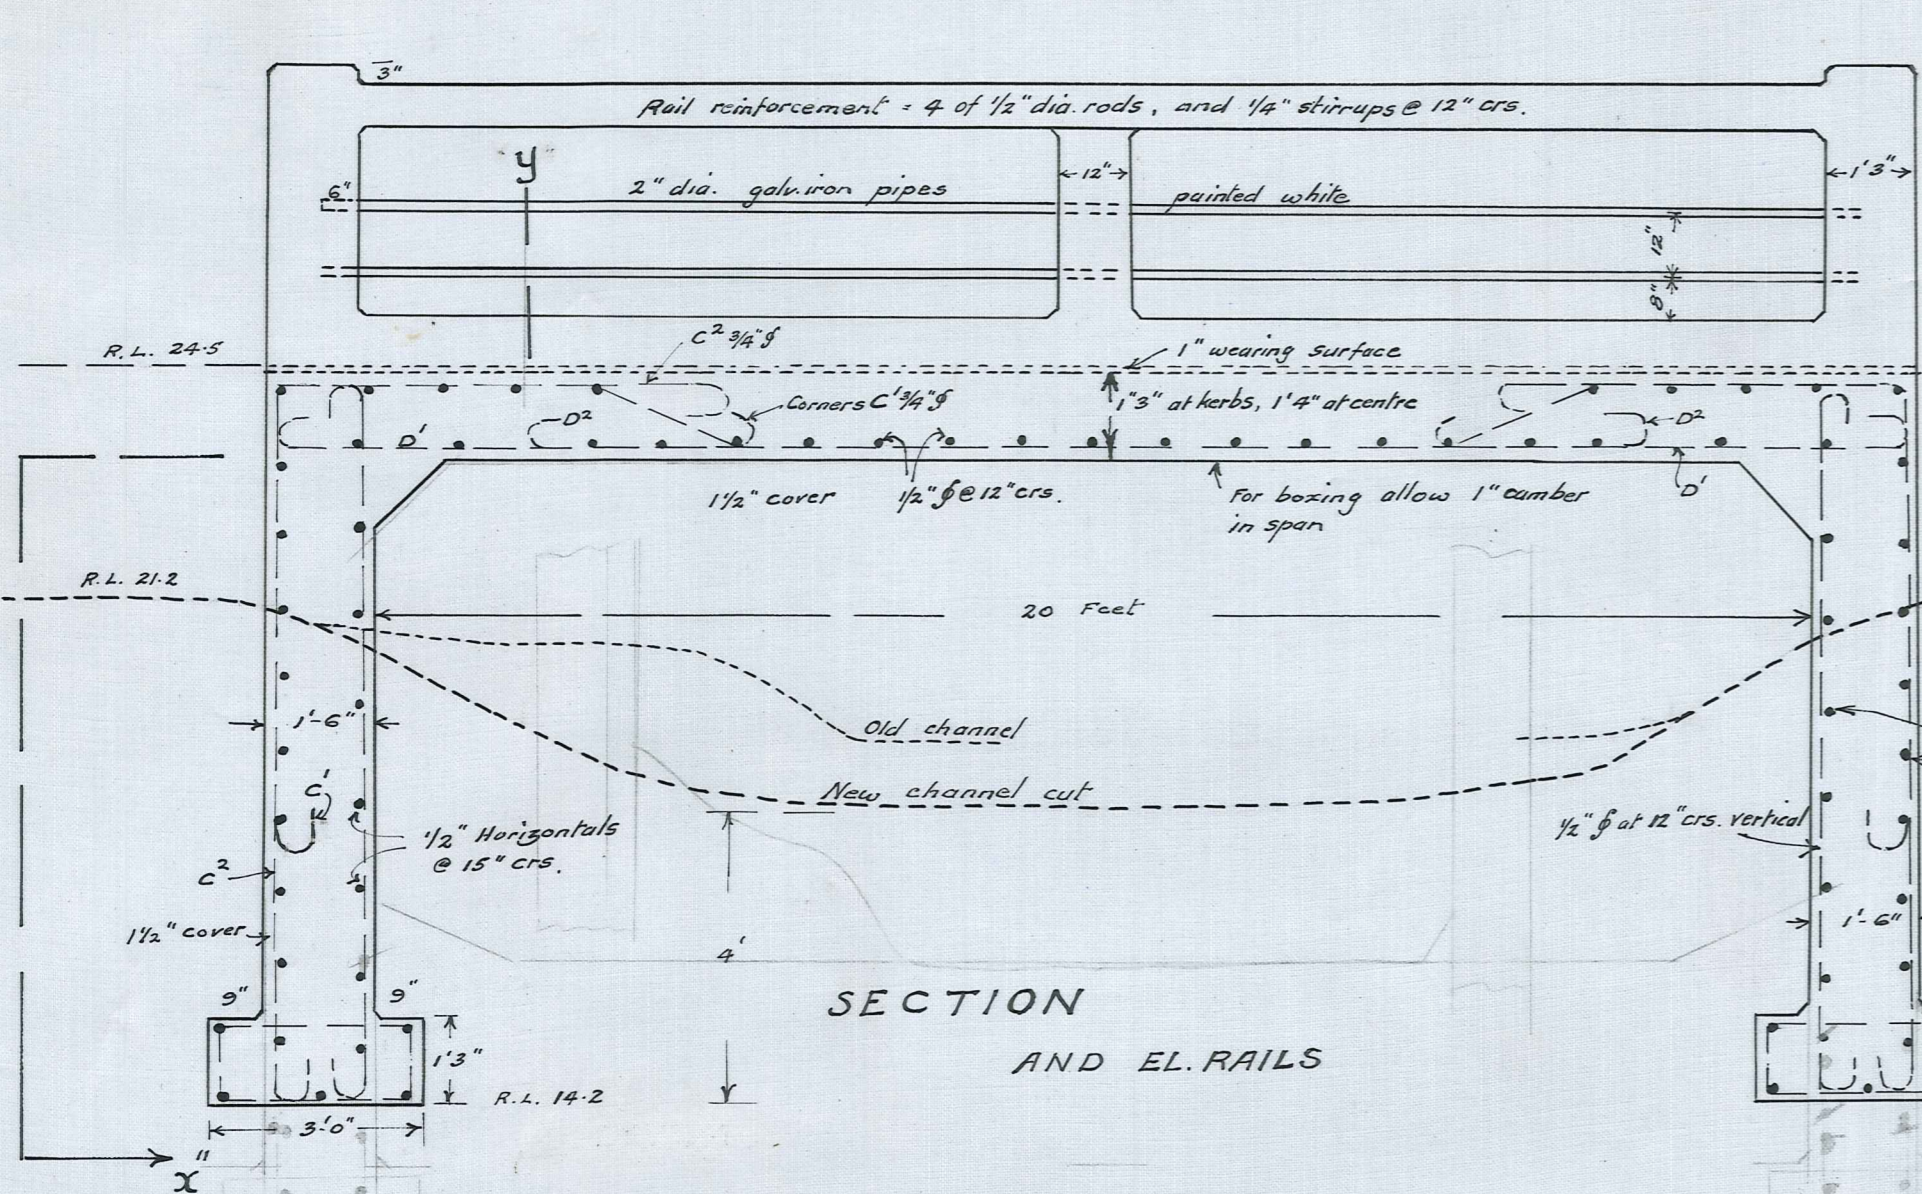 3"
Rail reinforcement = 4 of 1/2" dia. rods, and 1/4" stirrups @ 12" crs.
y
6"
2" dia. galv. iron pipes
12"
painted white
1'3"
12"
8"
R.L. 24.5
C² 3/4" ∮
1" wearing surface
Corners C' 3/4" ∮
1"3" at kerbs, 1'4" at centre
D'
D²
D²
1 1/2" cover
1/2" ∮ @ 12" crs.
For boxing allow 1" camber
in span
D'
R.L. 21.2
20 Feet
1'-6"
Old channel
C'
New channel cut
1/2" Horizontals
@ 15" crs.
1/2" ∮ at 12" crs. vertical
C²
1 1/2" cover
4'
1'-6"
9"
9"
SECTION
1'3"
AND EL. RAILS
R.L. 14.2
3'-0"
x"